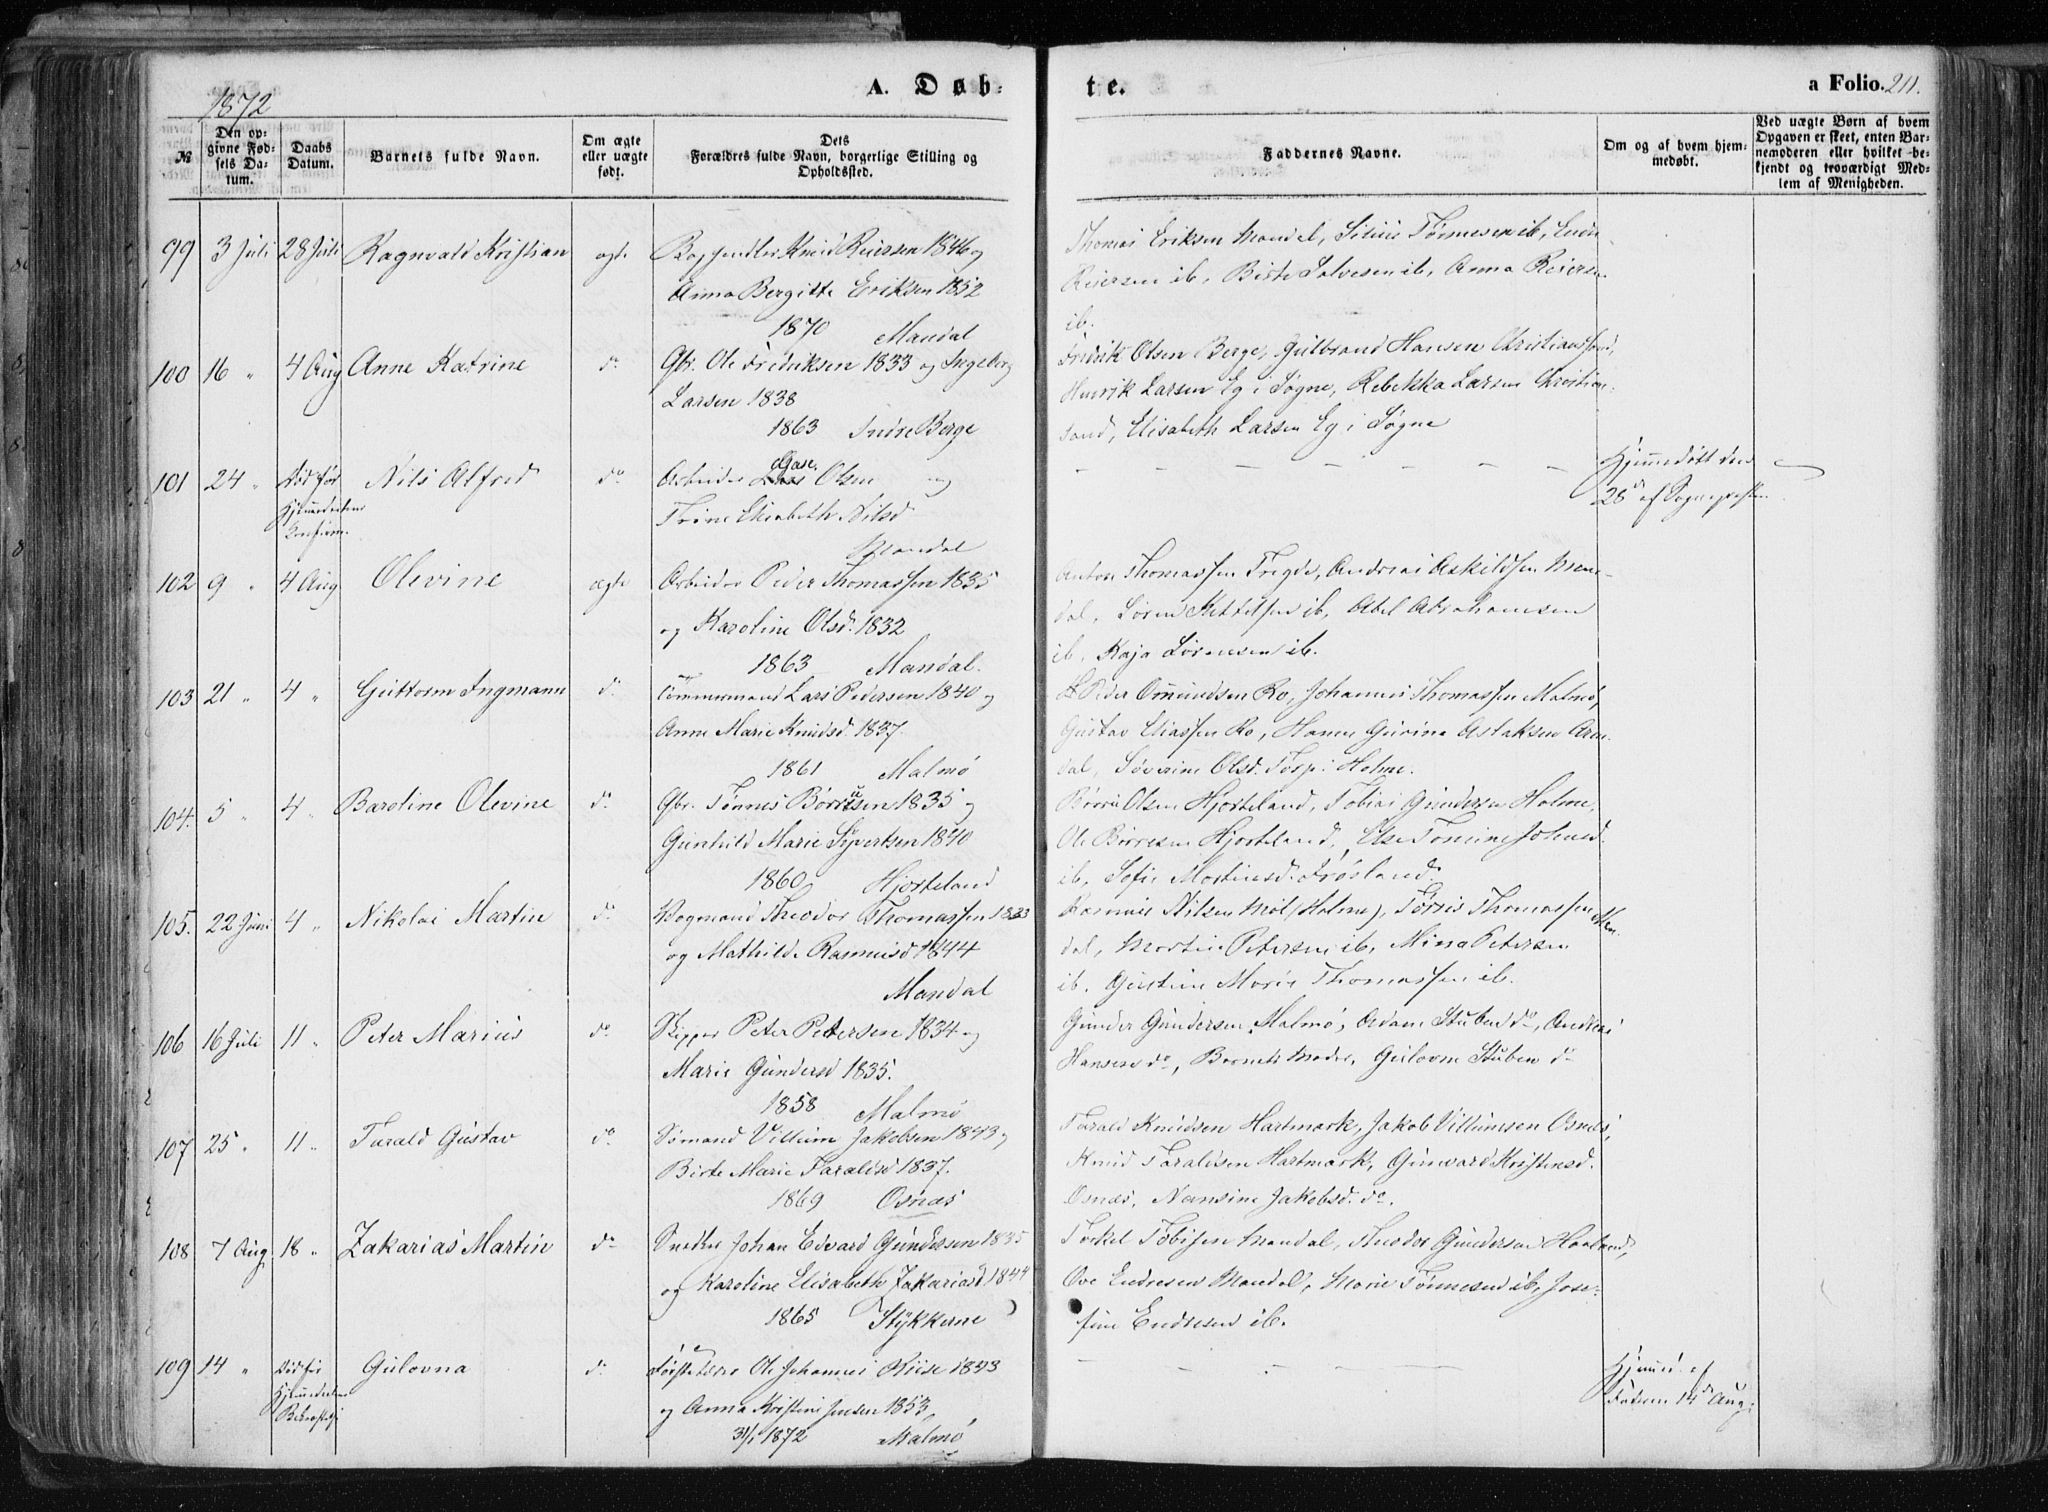 1872
A. Døb-
te.
a Folio. 211.
№
Den op-
givne Fød-
sels Da-
tum.
Daabs
Datum.
Barnets fulde Navn.
Om ægte
eller uægte
født.
Dets
Forældres fulde Navn, borgerlige Stilling og
Opholdssted.
Faddernes Navne.
Om og af hvem hjem-
medøbt.
Ved uægte Børn af hvem
Opgaven er skeet, enten Bar-
nemoderen eller hvilket be-
kjendt og troværdigt Med-
lem af Menigheden.
99 3 Juli 28 Juli Ragnvald Kristian ægte Knud Reiersen 1846 og
Anna Bergitte Eriksen 1852
1870 Mandal
Thomas Eriksen Mandal, Tønnesen ib,
Reiersen ib, Birte Salvesen ib, Anna Reiersen
ib.
100 16 " 4 Aug Anne Katrine do Gbr. Ole Fredriksen 1833 og Ingeborg
Larsen 1838
1863 Indre Berge
Fredrik Olsen Berge, Gulbrand Hansen Christianssand,
Henrik Larsen Eg i Søgne, Rebekka Larsen Christian-
sand, Elisabeth Larsen Eg i Søgne
101 24 " Død før Hjemmedaabens Nils Alfred do Arbeider Olsen og
Trine Elisabeth Nilsd
Mandal
Hjemmedøbt den
28de af Sognepresten
102 9 " 4 Aug Olevine ægte Arbeider Peder Thomassen 1835
og Karoline Olsd. 1832
1863 Mandal.
Anton Thomassen Tregde, Andreas Askildsen Man-
dal, Søren Kittelsen ib, Abel Abrahamsen
ib, Kaja Sørensen ib.
103 21 " 4 " Guttorm Ingmann do Tømmermand Lars Pedersen 1840 og
Anne Marie Knudsd 1837.
1861 Malmø
Peder Omundsen Ro, Johannes Thomassen Malmø,
Gustav Eliassen Ro, Hanne Gurine Aslaksen Aren-
dal, Søverine Olsd. Torp i Holme.
104. 5 " 4 " Baroline Olevine do Gbr. Tønnes Børresen 1835 og
Gunhild Marie Syvertsen 1840
1860 Hjorteland
Børre Olsen Hjorteland, Tobias Gundersen Holme,
Ole Børresen Hjorteland, Else Tomine Johnsd.
ib, Sofie Mortensd. Frøsland.
105. 22 Juni 4 " Nikolai Martin do Vognmand Theodor Thomassen 1833
og Mathilde Rasmusd 1844
Mandal
Rasmus Nilsen Møl (Holme), Tørris Thomassen Man-
dal, Martin Petersen ib, Mina Petersen
ib. Gustine Marie Thomassen ib.
106 16 Juli 11 " Peter Marius do Skipper Peter Petersen 1834 og
Marie Gundersd 1835.
1858 Malmø
Gunder Gundersen Malmø, Adam Stuben do, Andreas
Hansen do, Barnets Moder, Gulovne Stuben do
107 25 " 11 " Tarald Gustav do Sømand Villum Jakobsen 1843 og
Birte Marie Taraldsd 1837.
1869 Osnæs
Tarald Knudsen Hartmark, Jakob Villumsen Osnæs,
Knud Taraldsen Hartmark, Gunvard Kristensd.
Osnæs, Nansine Jakobsd. do.
108 7 Aug 18 " Zakarias Martin do Snedker Johan Edvard Gundersen 1835
og Karoline Elisabeth Zakariasd 1844
1865 Stykkerne
Torkel Tobisen Mandal, Theodor Gundersen Haaland,
Ove Endresen Mandal, Marie Tønnesen ib, Jose-
fine Endresen ib.
109 14 " Død før Hjemmedaabens Bekræftelse Gulovna do Ole Johannes Kruse 1843
og Anna Kristine Jensen 1853
31/1 1872 Malmø
Hjemmed. af
Faderen 14de Aug.